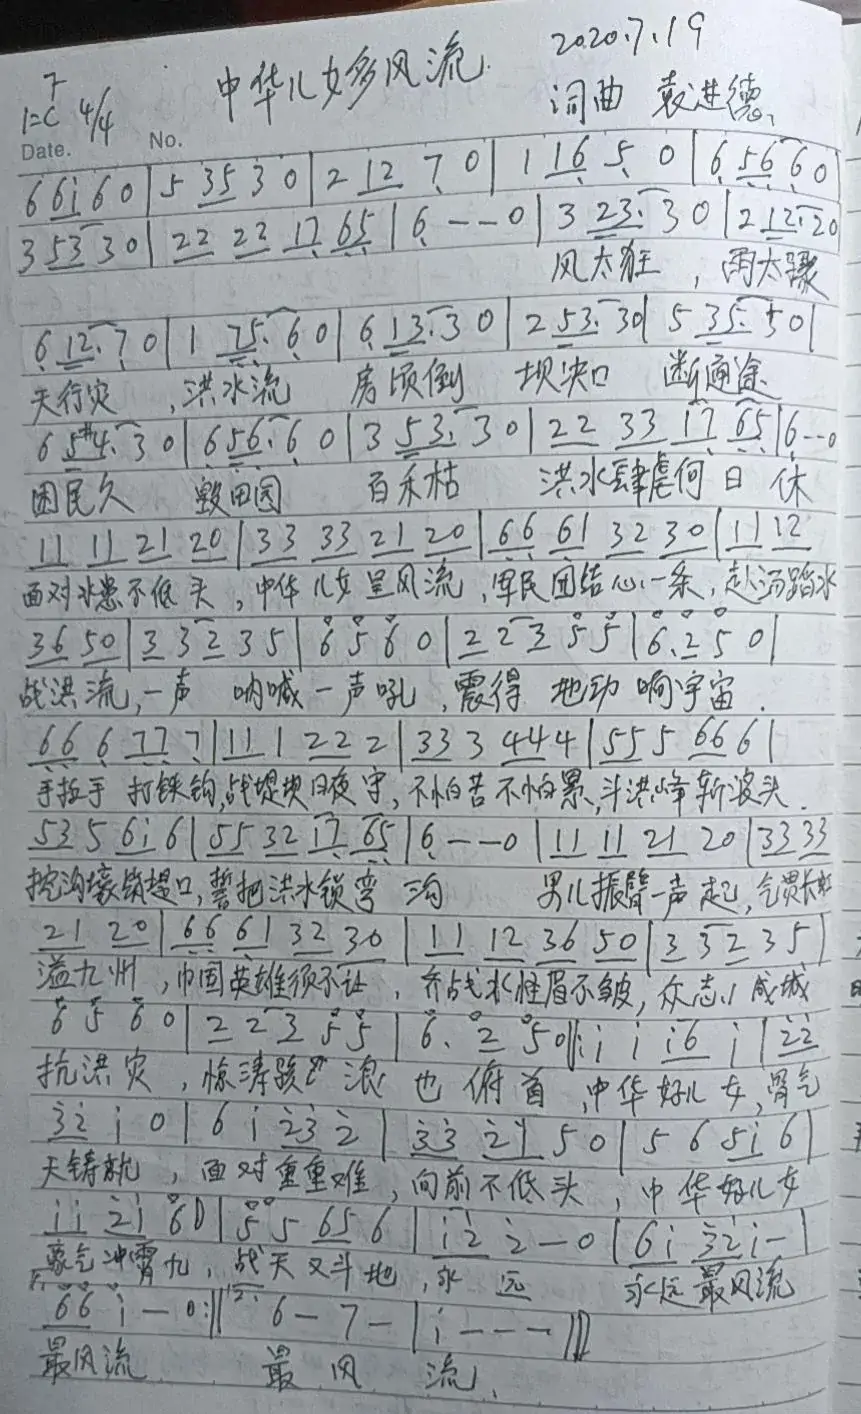 中华儿女多风流 2020.7.19
1=C 4/4 词曲 袁进德
Date. No.
6 6i 6 0 | 5 35 3 0 | 2 12 7 0 | 1 16 5 0 | 6 56 6 0
3 53 3 0 | 22 22 17 65 | 6 - - 0 | 3 23. 3 0 | 2 12. 20
风太狂 , 雨太骤
6 12. 7 0 | 1 75. 6 0 | 6 13. 3 0 | 2 53. 30 | 5 35. 50 |
天行灾 , 洪水流 房顷倒 坝决口 断通途
6 5#4. 3 0 | 6 56. 6 0 | 3 53. 3 0 | 22 33 17 65 | 6 - - 0
困民久 毁田园 百禾枯 洪水肆虐何日 休
11 11 21 20 | 33 33 21 20 | 66 61 32 30 | 11 12
面对水患不低头, 中华儿女显风流, 军民团结心一条, 赴汤蹈水
36 50 | 3 3 2 3 5 | 6 5 6 0 | 2 2 3 5 5 | 6. 2 5 0 |
战洪流, 一声 呐喊一声吼, 震得 地动 啊宇宙.
66 6 77 7 | 11 1 22 2 | 33 3 44 4 | 55 5 66 6 |
手拉手 打铁钩, 战堤坝日夜守, 不怕苦不怕累, 斗洪峰斩波头.
53 5 6i 6 | 55 32 17 65 | 6 - - - 0 | 11 11 21 20 | 33 33
挖沟壕锁堤口, 誓把洪水锁弯 沟 男儿振臂一声起, 气贯长虹
21 20 | 66 61 32 30 | 11 12 36 50 | 3 3 2 3 5 |
溢九州 , 巾国英雄须不让 , 齐战水怪眉不皱, 众志 成城
6 5 6 0 | 2 2 3 5 5 | 6. 2 5 0 ||: i i i6 i | 22
抗洪灾 , 惊涛骇 浪 也 俯首 , 中华好儿女, 骨气
32 i 0 | 6 i 23 2 | 33 21 5 0 | 5 6 5i 6 |
天铸就 , 面对重重难 , 向前不低头 , 中华好儿女
ii 2i 60 | 5 5 65 6 | i2 2 - 0 | 6i 32 i - |
豪气冲霄九, 战天又斗地, 永 远 永远最风流
66 i - 0 :|| 6 - 7 - | i - - - |||
最风流 最 风 流.